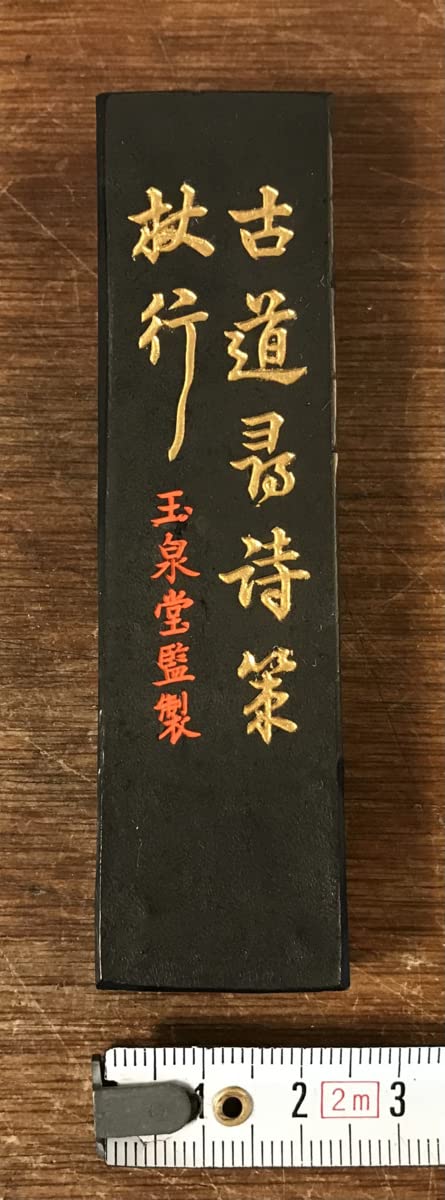 古道尋诗策
杖行
玉泉堂監製
1 2 2m 3